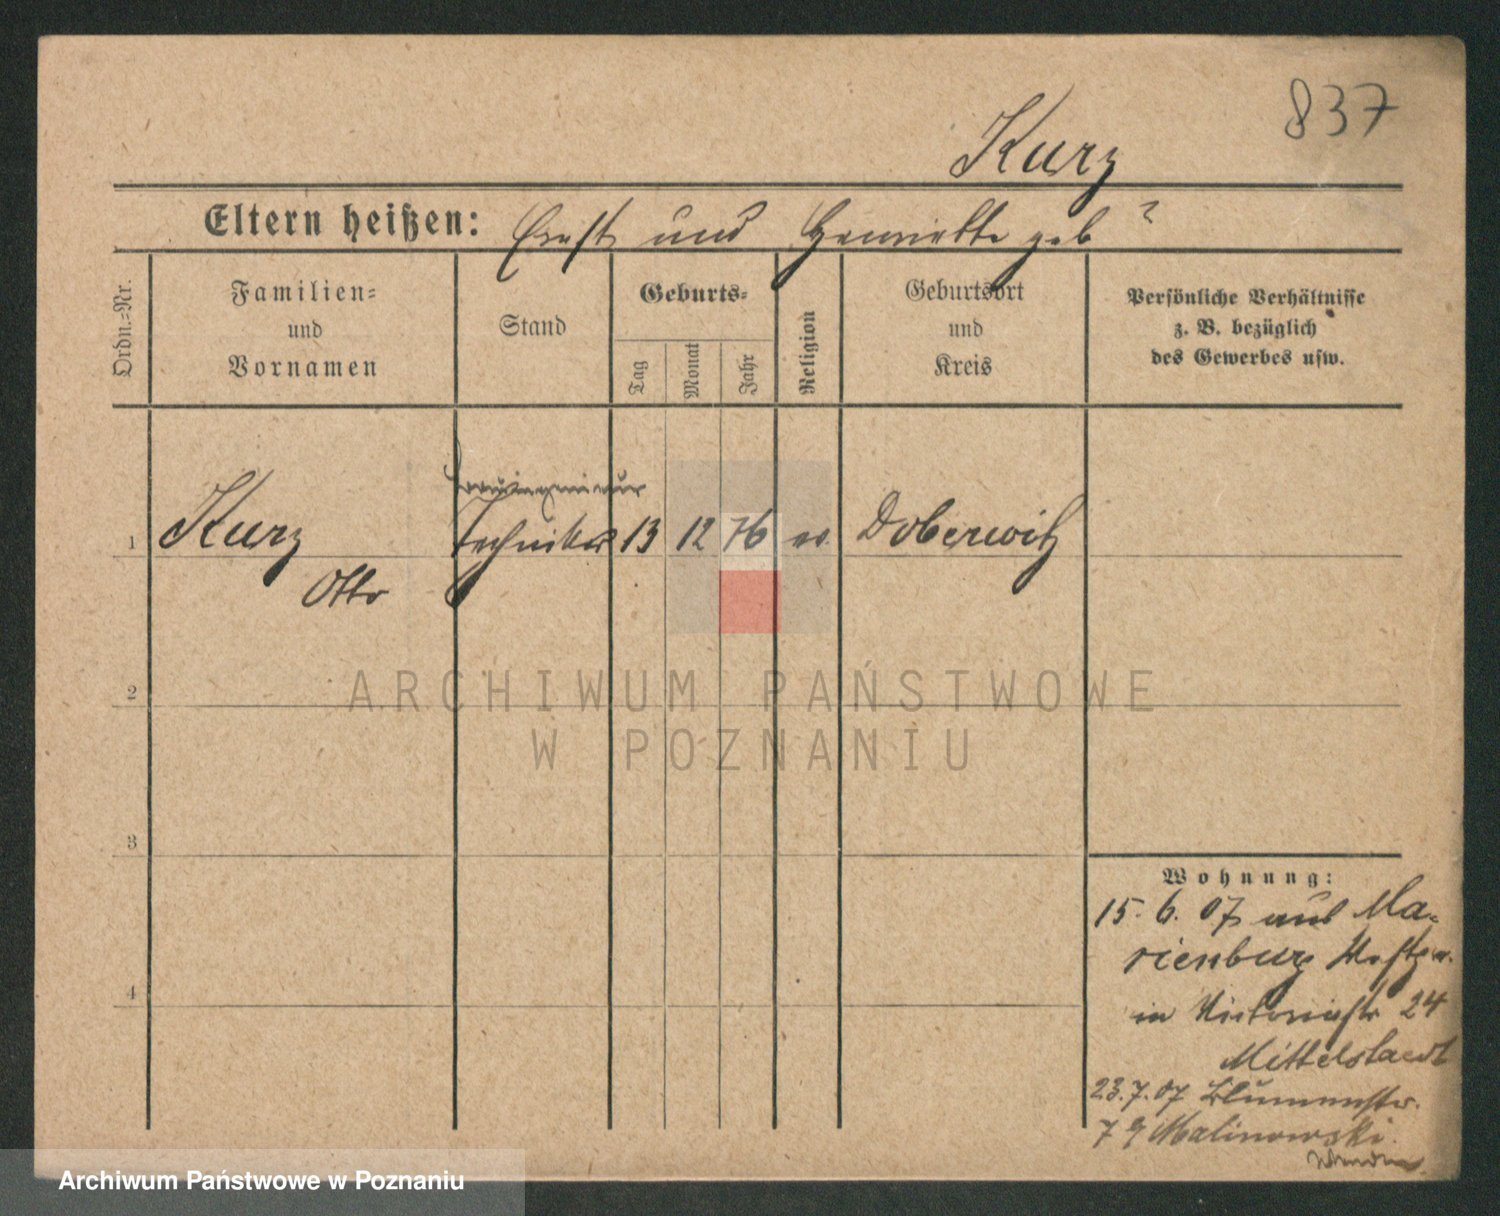 837
Kurz
Eltern heißen: Ernst und Henriette geb ?
Ordn.=Nr.
Familien=
und
Vornamen
Stand
Geburts=
Tag
Monat
Jahr
Religion
Geburtsort
und
Kreis
Persönliche Verhältnisse
z. B. bezüglich
des Gewerbes usw.
Bauingenieur
1 Kurz Techniker 13 12 76 ev. Doberwitz
Otto
2
ARCHIWUM PAŃSTWOWE
W POZNANIU
3
4
Wohnung:
15. 6. 07 aus Ma=
rienburg Westpr.
in Victoriastr 24
Mittelstaedt
23.7.07 Blumenstr.
7 Malinowski.
Wenden
Archiwum Państwowe w Poznaniu